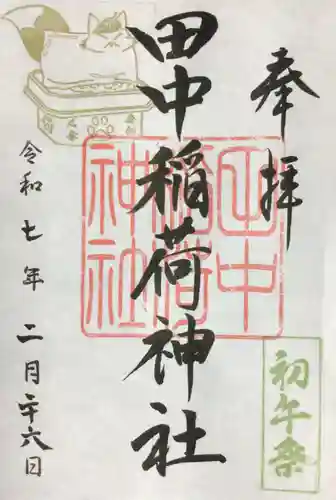 奉拝
田中稲荷神社
田中
稲荷
神社
初午祭
令和七年二月二十六日